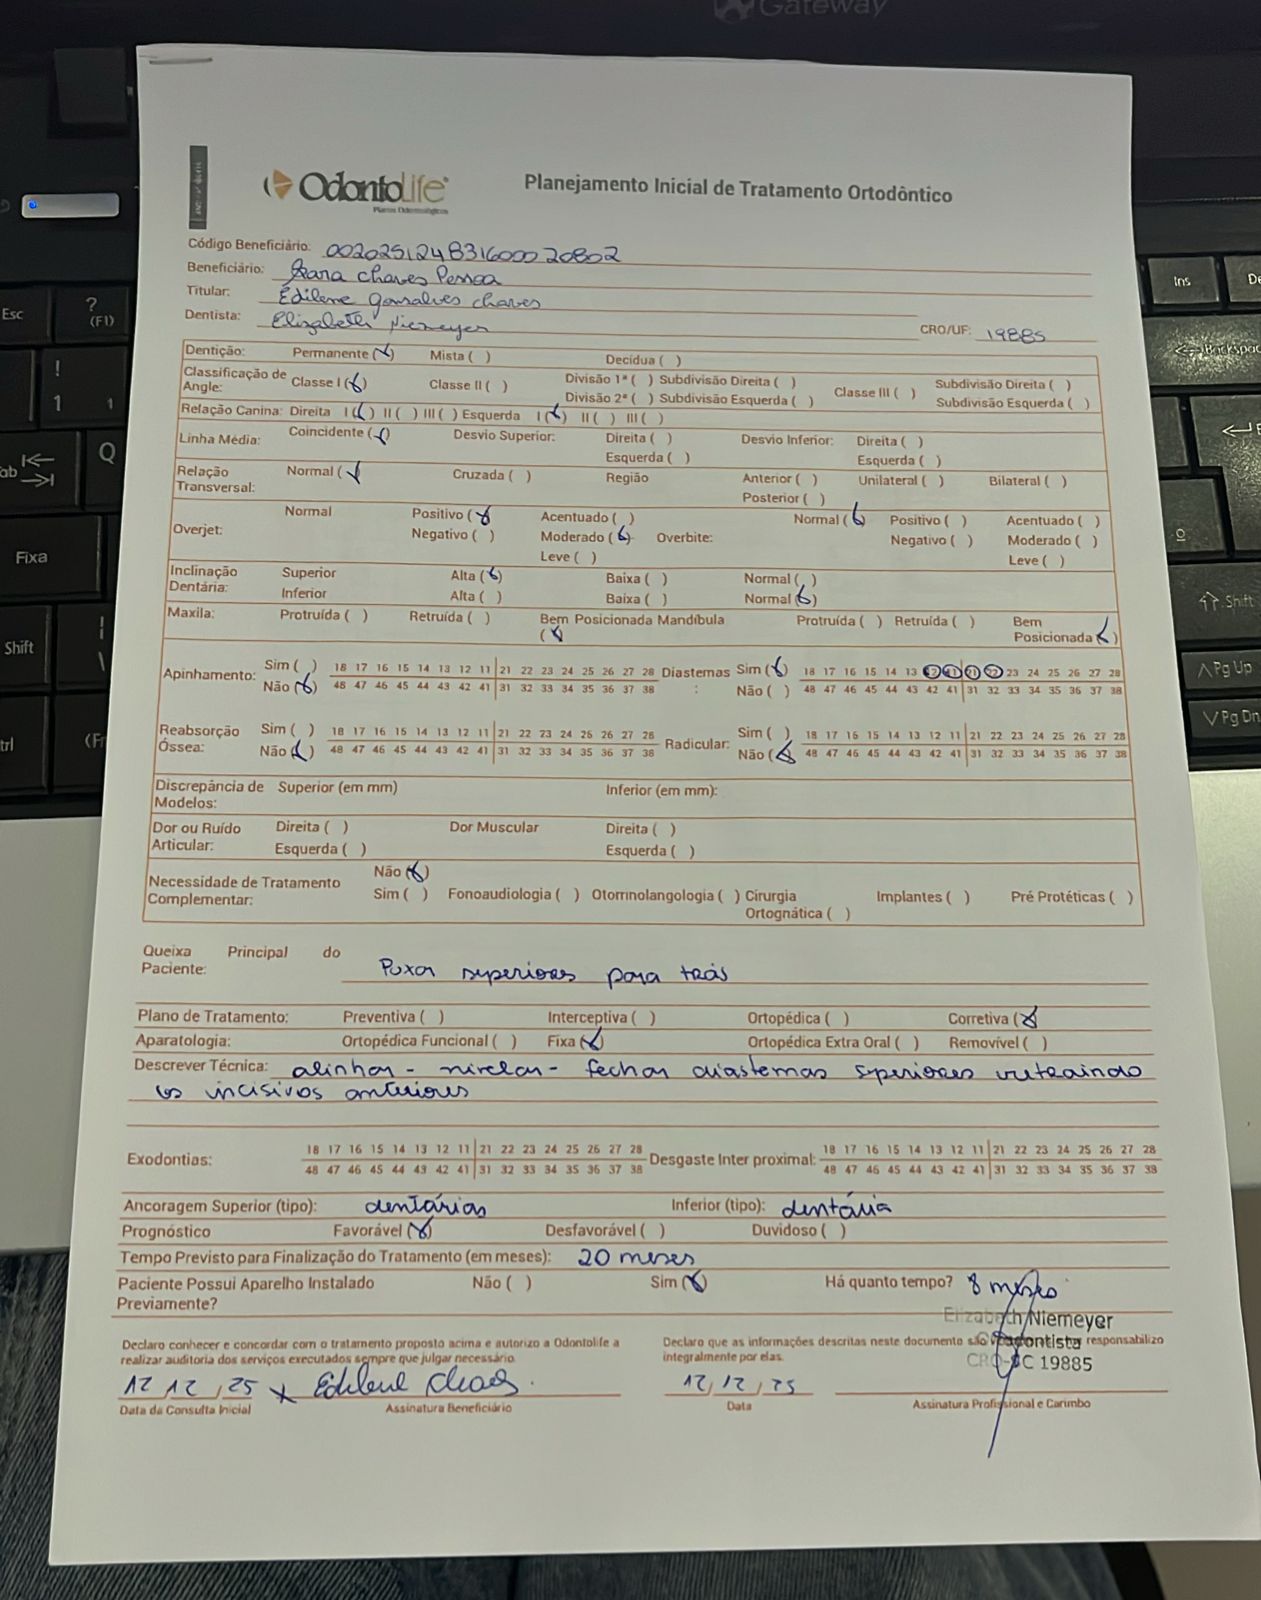 Gateway
OdontoLife
Planos Odontológicos
Planejamento Inicial de Tratamento Ortodôntico
Código Beneficiário: 00202512483160000 20802
Beneficiário: Chaves Pessoa
Titular: Edilene Gonsalves Chaves
Dentista: Elizabeth Niemeyer CRO/UF: 19885
Dentição: Permanente (x) Mista ( ) Decídua ( )
Classificação de Angle: Classe I (x) Classe II ( ) Divisão 1ª ( ) Subdivisão Direita ( ) Classe III ( ) Subdivisão Direita ( )
Divisão 2ª ( ) Subdivisão Esquerda ( ) Subdivisão Esquerda ( )
Relação Canina: Direita I (x) II ( ) III ( ) Esquerda I (x) II ( ) III ( )
Linha Média: Coincidente (x) Desvio Superior: Direita ( ) Desvio Inferior: Direita ( )
Esquerda ( ) Esquerda ( )
Relação Transversal: Normal (x) Cruzada ( ) Região Anterior ( ) Unilateral ( ) Bilateral ( )
Posterior ( )
Overjet: Normal Positivo (x) Acentuado ( ) Overbite: Normal (x) Positivo ( ) Acentuado ( )
Negativo ( ) Moderado (x) Negativo ( ) Moderado ( )
Leve ( ) Leve ( )
Inclinação Dentária: Superior Alta (x) Baixa ( ) Normal ( )
Inferior Alta ( ) Baixa ( ) Normal (x)
Maxila: Protruída ( ) Retruída ( ) Bem Posicionada (x) Mandíbula Protruída ( ) Retruída ( ) Bem Posicionada (x)
Apinhamento: Sim ( ) 18 17 16 15 14 13 12 11 21 22 23 24 25 26 27 28 Diastemas: Sim (x) 18 17 16 15 14 13 12 11 21 22 23 24 25 26 27 28
Não (x) 48 47 46 45 44 43 42 41 31 32 33 34 35 36 37 38 Não ( ) 48 47 46 45 44 43 42 41 31 32 33 34 35 36 37 38
Reabsorção Óssea: Sim ( ) 18 17 16 15 14 13 12 11 21 22 23 24 25 26 27 28 Radicular: Sim ( ) 18 17 16 15 14 13 12 11 21 22 23 24 25 26 27 28
Não (x) 48 47 46 45 44 43 42 41 31 32 33 34 35 36 37 38 Não (x) 48 47 46 45 44 43 42 41 31 32 33 34 35 36 37 38
Discrepância de Modelos: Superior (em mm) Inferior (em mm):
Dor ou Ruído Articular: Direita ( ) Dor Muscular Direita ( )
Esquerda ( ) Esquerda ( )
Necessidade de Tratamento Complementar: Não (x)
Sim ( ) Fonoaudiologia ( ) Otorrinolangologia ( ) Cirurgia Ortognática ( ) Implantes ( ) Pré Protéticas ( )
Queixa Principal do Paciente: Puxar superiores para trás
Plano de Tratamento: Preventiva ( ) Interceptiva ( ) Ortopédica ( ) Corretiva (x)
Aparatologia: Ortopédica Funcional ( ) Fixa (x) Ortopédica Extra Oral ( ) Removível ( )
Descrever Técnica: alinhar - nivelar - fechar diastemas superiores retraindo
os incisivos anteriores
Exodontias: 18 17 16 15 14 13 12 11 21 22 23 24 25 26 27 28 Desgaste Inter proximal: 18 17 16 15 14 13 12 11 21 22 23 24 25 26 27 28
48 47 46 45 44 43 42 41 31 32 33 34 35 36 37 38 48 47 46 45 44 43 42 41 31 32 33 34 35 36 37 38
Ancoragem Superior (tipo): dentárias Inferior (tipo): dentária
Prognóstico Favorável (x) Desfavorável ( ) Duvidoso ( )
Tempo Previsto para Finalização do Tratamento (em meses): 20 meses
Paciente Possui Aparelho Instalado Previamente? Não ( ) Sim (x) Há quanto tempo? 8 meses
Elizabeth Niemeyer
CRO-SC 19885
Declaro conhecer e concordar com o tratamento proposto acima e autorizo a Odontolife a
realizar auditoria dos serviços executados sempre que julgar necessário.
Declaro que as informações descritas neste documento são responsabilizo
integralmente por elas.
12, 12, 25 x Edilene Chaves
12, 12, 25
Data da Consulta Inicial Assinatura Beneficiário Data Assinatura Profissional e Carimbo
Esc
? (F1)
!
1 1
Tab
Q
Fixa
Shift
|
\
Ctrl
(Fn
Ins
De
Backspac
E
º
Shift
Pg Up
Pg Dn